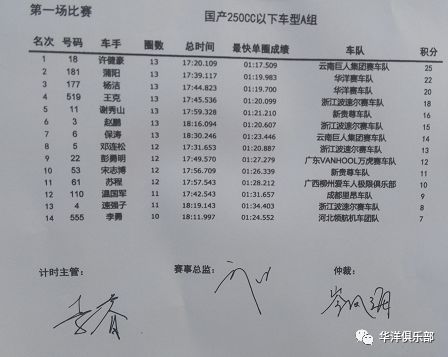 第一场比赛 国产250CC以下车型A组
名次 号码 车手 圈数 总时间 最快单圈成绩 车队 积分
1 18 许健豪 13 17:20.109 01:17.509 云南巨人集团赛车队 25
2 181 蒲阳 13 17:39.117 01:19.983 华洋赛车队 22
3 177 杨洁 13 17:44.823 01:19.700 华洋赛车队 20
4 519 王克 13 17:45.536 01:20.099 浙江波速尔赛车队 18
5 11 谢秀山 13 17:59.328 01:21.210 新贵尊车队 16
6 3 赵鹏 13 18:16.094 01:20.607 浙江波速尔赛车队 15
7 6 保涛 13 18:30.246 01:23.446 云南巨人集团赛车队 14
8 5 邓连松 12 17:31.653 01:20.887 浙江波速尔赛车队 13
9 22 彭勇明 12 17:49.570 01:27.279 广东VANHOOL万虎赛车队 12
10 53 宋志博 12 17:56.709 01:26.339 新贵尊车队 11
11 61 苏程 12 17:57.543 01:28.212 广西柳州爱车人极限俱乐部 10
12 110 温国军 11 17:42.543 01:31.657 成都里昂车队 9
13 4 速强子 11 18:19.143 01:34.403 浙江波速尔赛车队 8
14 555 李勇 10 18:11.997 01:24.552 河北领航机车团队 7
计时主管： 赛事总监： 仲裁：
华洋俱乐部